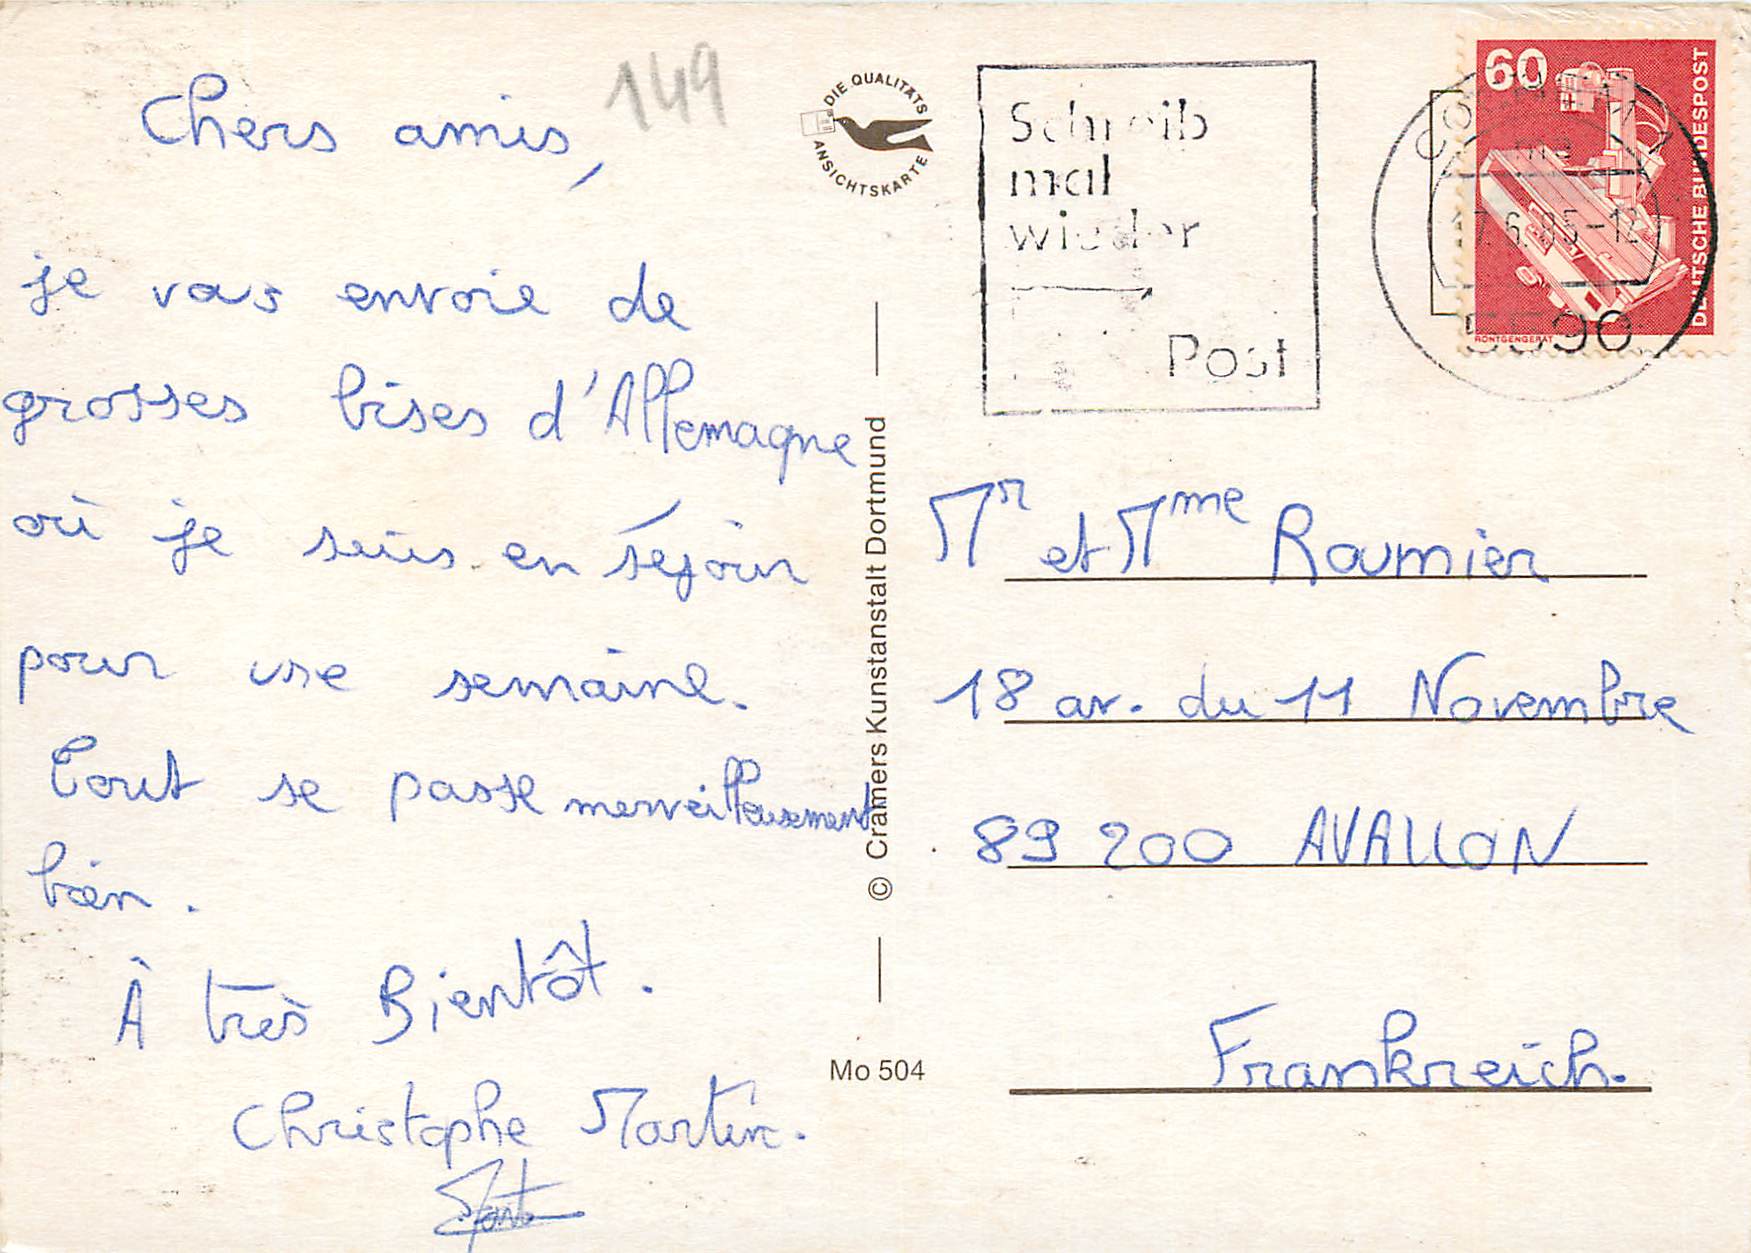 149
Chers amis,
je vous envoie de
grosses bises d'Allemagne
où je suis en séjour
pour une semaine.
Tout se passe merveilleusement
bien.
À très Bientôt.
Christophe Martin.
DIE QUALITÄTS
ANSICHTSKARTE
© Cramers Kunstanstalt Dortmund
Mo 504
Schreib
mal
wieder
Post
60
DEUTSCHE BUNDESPOST
RÖNTGENGERÄT
COCHEM 1
17.6.85-12
5590
Mr et Mme Roumier
18 av. du 11 Novembre
89 200 AVALLON
Frankreich.